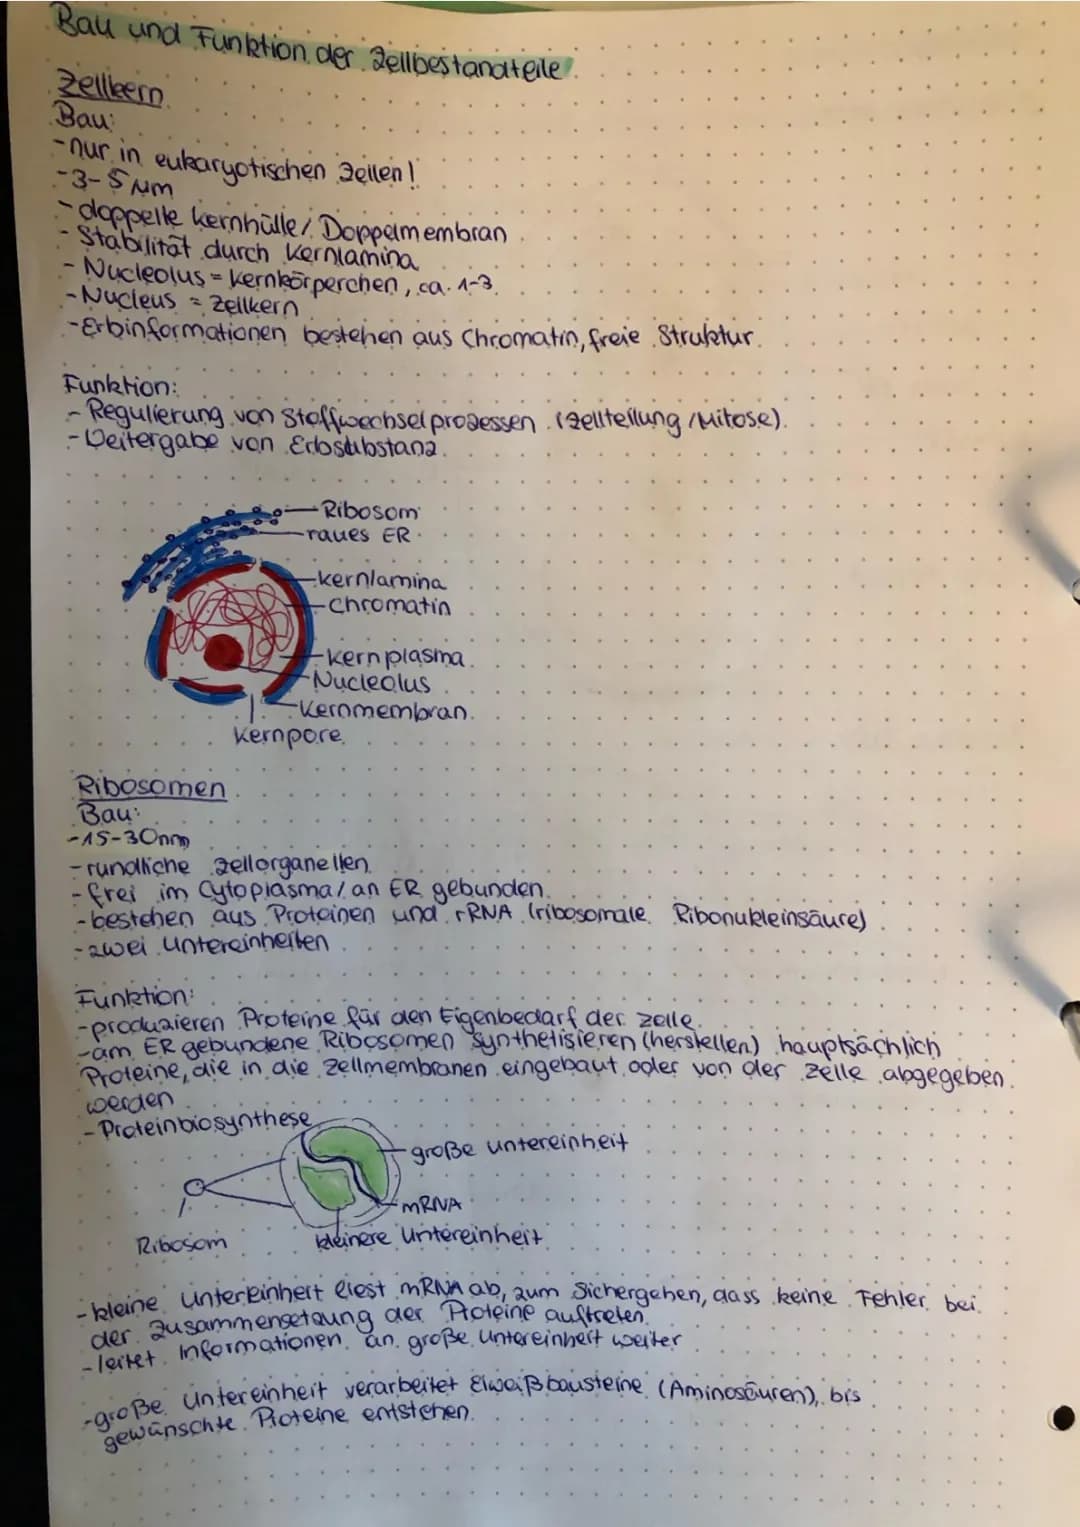 Bau und Funktion der Zellbestandteile
Zellkern
Bau:
-nur in eukaryotischen Zellen!
-3-5 µm
-doppelte Kernhülle/Doppelmembran
-Stabilität durch Kernlamina
-Nucleolus = Kernkörperchen, ca. 1-3
-Nucleus = Zellkern
-Erbinformationen bestehen aus Chromatin, freie Struktur
Funktion:
-Regulierung von Stoffwechselprozessen (Zellteilung/Mitose)
-Weitergabe von Erbsubstanz
Ribosom
raues ER
Kernlamina
Chromatin
Kernplasma
Nucleolus
Kernmembran
Kernpore
Ribosomen
Bau:
-15-30nm
-rundliche Zellorganellen
-frei im Cytoplasma/an ER gebunden
-bestehen aus Proteinen und rRNA (ribosomale Ribonukleinsäure)
-zwei Untereinheiten
Funktion:
-produzieren Proteine für den Eigenbedarf der Zelle
-am ER gebundene Ribosomen synthetisieren (herstellen) hauptsächlich
Proteine, die in die Zellmembranen eingebaut oder von der Zelle abgegeben
werden
-Proteinbiosynthese
große Untereinheit
mRNA
Ribosom
kleinere Untereinheit
-kleine Untereinheit liest mRNA ab, zum Sichergehen, dass keine Fehler bei
der Zusammensetzung der Proteine auftreten
-leitet Informationen an große Untereinheit weiter
-große Untereinheit verarbeitet Eiweißbausteine (Aminosäuren), bis
gewünschte Proteine entstehen